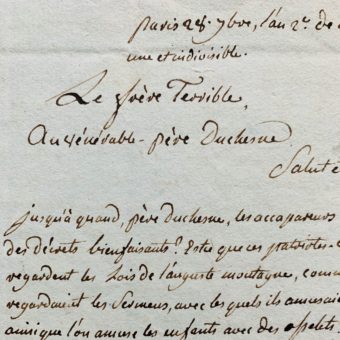 Paris 28. 7bre, l'an 2e. de
une et indivisible.
Le frère Terrible,
Au vénérable père Duchesne
Salut e
jusqu'à quand, père duchesne, les accapareurs
des décrets bienfaisants? Este que ces patriotes-
regardent les Lois de l'auguste montagne, comm
regardaient les Sermens, avec les quels ils amusaie
ainsi que l'on amuse les enfants avec des osselets.